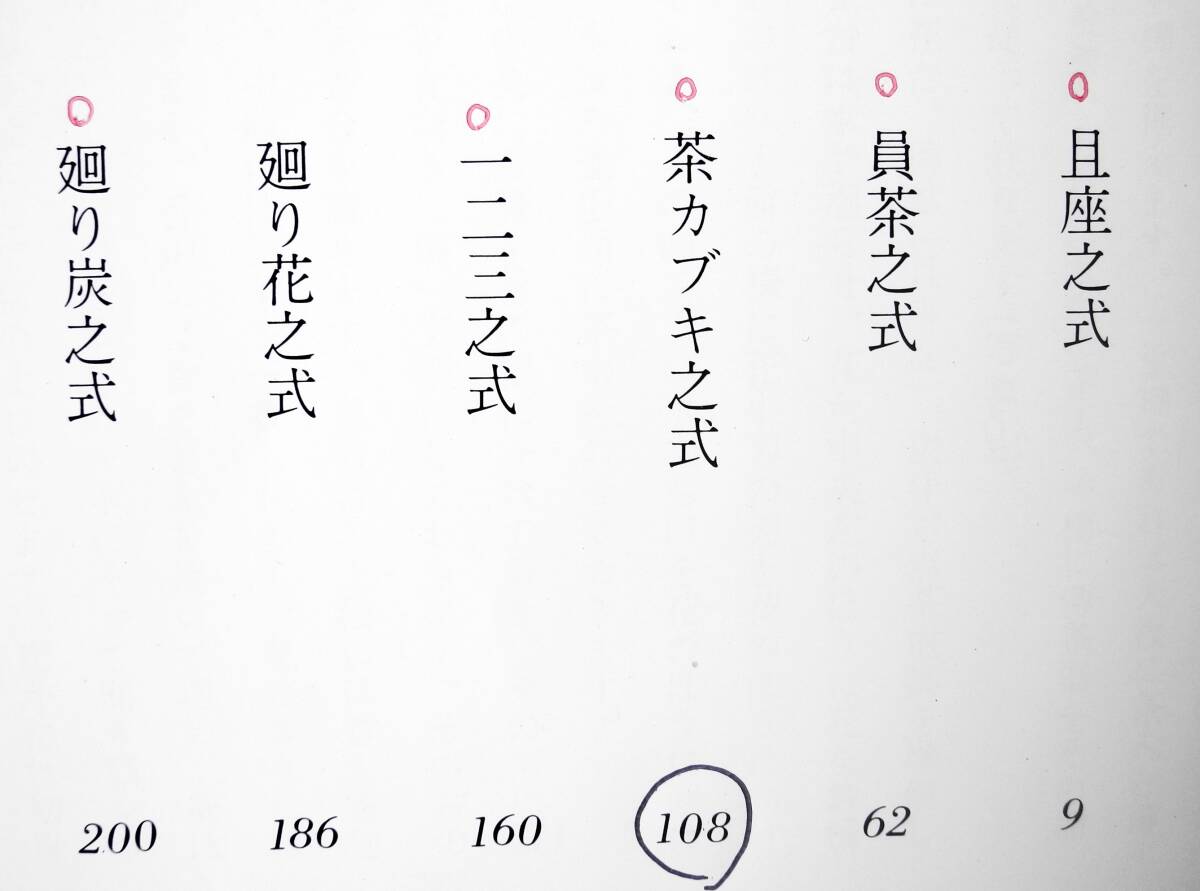 且座之式 9
員茶之式 62
茶カブキ之式 108
一二三之式 160
廻り花之式 186
廻り炭之式 200